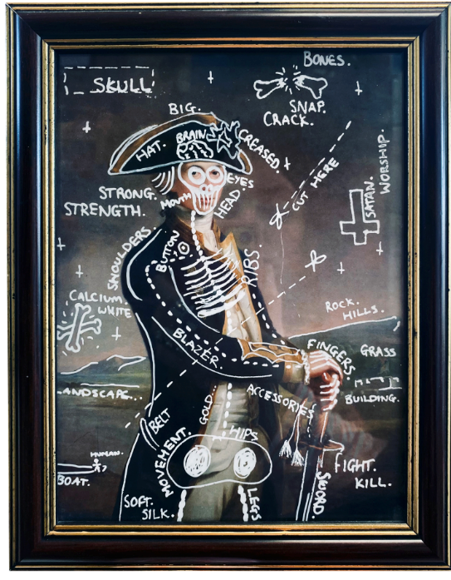 BONES.
SKULL
SNAP.
CRACK.
BIG.
HAT.
BRAIN
CREASED.
WORSHIP.
SATAN.
CUT HERE
EYES
HEAD.
MOUTH
STRONG.
STRENGTH.
SHOULDERS
BUTTON
RIBS.
CALCIUM
WHITE
ROCK.
HILLS.
BLAZER.
FINGERS
GRASS
ANDSCAPE..
ACCESSORIES
BUILDING.
BELT
GOLD.
HIPS
MOVEMENT.
HUMAN.
BOAT.
FIGHT.
KILL.
SWORD.
SOFT.
SILK.
LEGS